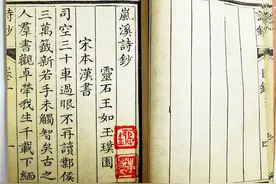 嵐溪詩鈔
靈石王如玉璞園
宋本漢書
司空三十車過眼不再讀鄴侯
三萬籤新若手未觸智矣古之
人羣書觀卓犖我生千載下緬